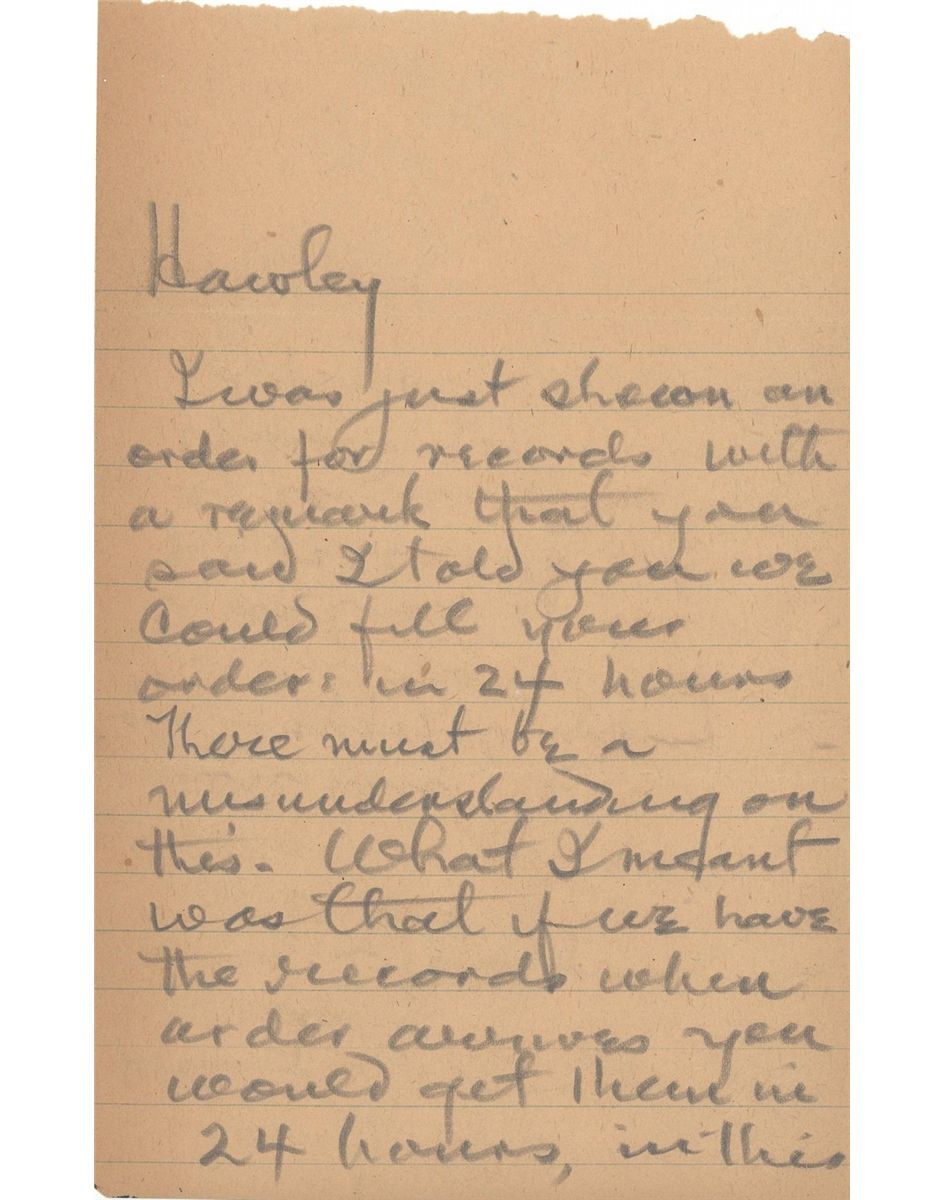 Hawley
I was just shown an
order for records with
a remark that you
said I told you we
could fill your
orders in 24 hours
There must be a
misunderstanding on
this. What I meant
was that if we have
the records when
order arrives you
would get them in
24 hours, in this